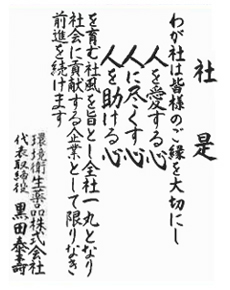 社是
わが社は皆様のご縁を大切にし
人を愛する心
人に尽くす心
人を助ける心
を育む社風を旨とし全社一丸となり
社会に貢献する企業として限りなき
前進を続けます
環境衛生薬品株式会社
代表取締役 黒田泰寿